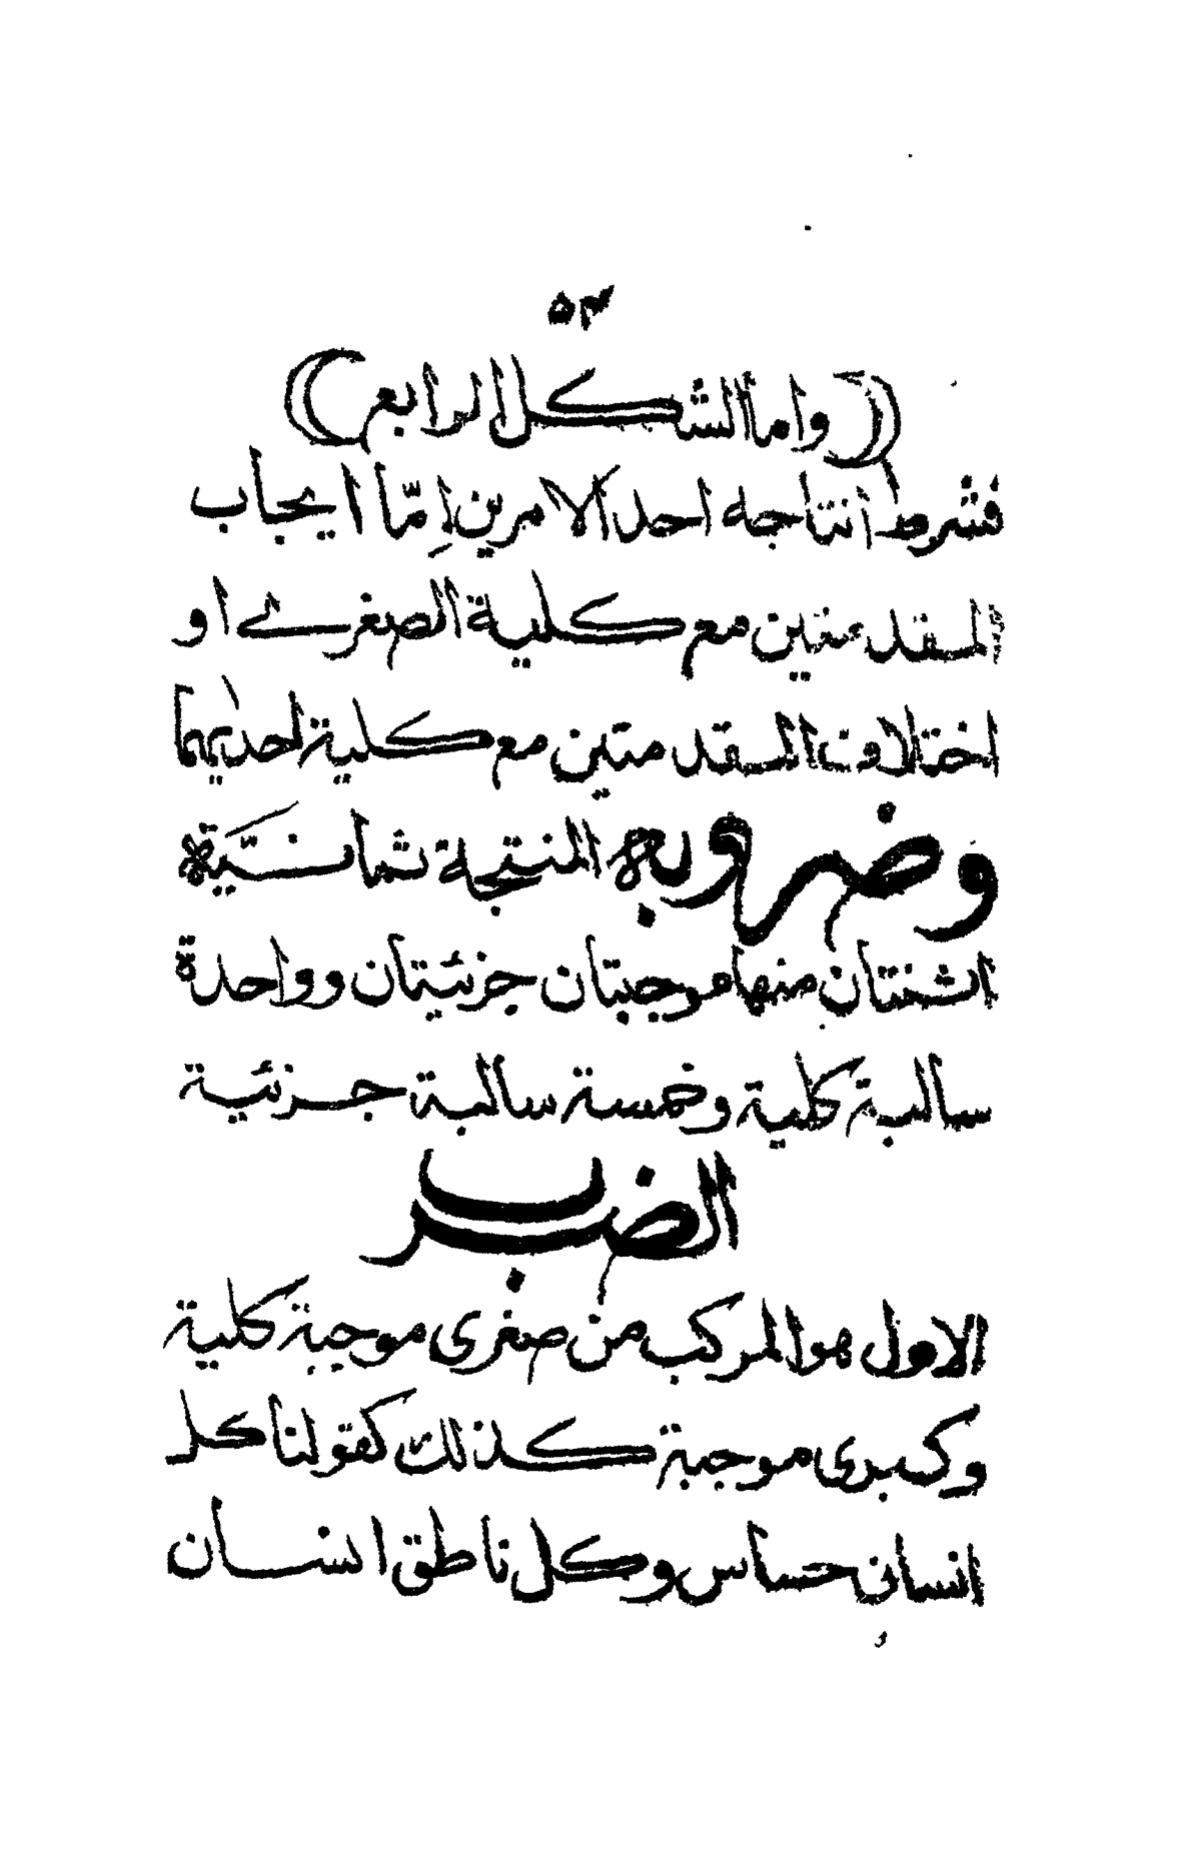 ٥٣
(واما الشكل الرابع)
فشرط انتاجه احد الامرين إمّا ايجاب
المقدمتين مع كلية الصغرے او
اختلاف المقدمتين مع كلية احديهما
وضروبه المنتجة ثمانيّة
اثنتان منها موجبتان جزئيتان وواحدة
سالبة كلية وخمسة سالبة جزئية
الضرب
الاول هو المركب من صغرى موجبة كلية
وكبرى موجبة كذلك كقولنا كل
انسان حساس وكل ناطق انسان